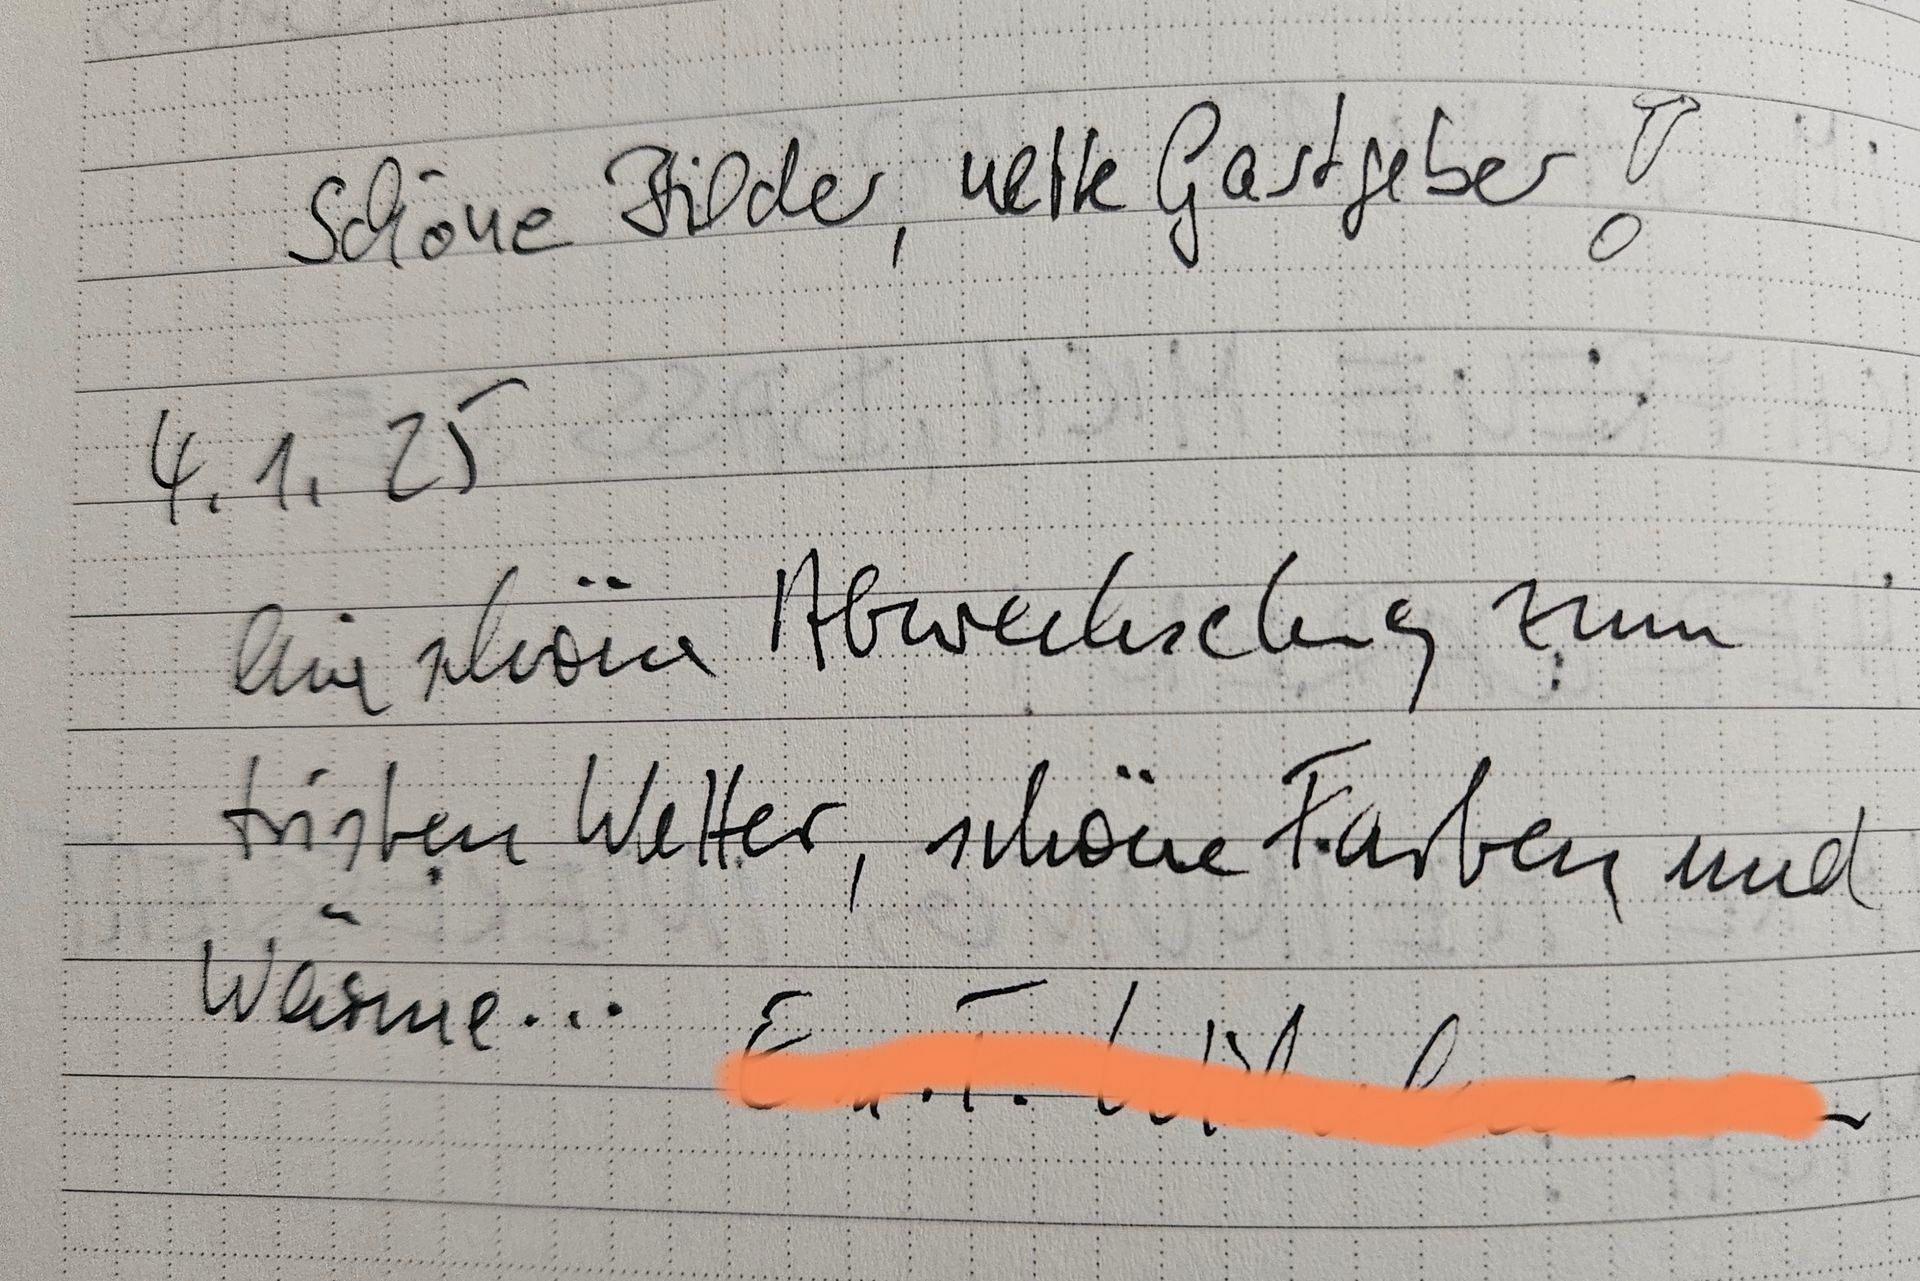 Schöne Bilder, nette Gastgeber!
4.1.25
Eine schöne Abwechslung zum
tristen Wetter, schöne Farben und
Wärme...